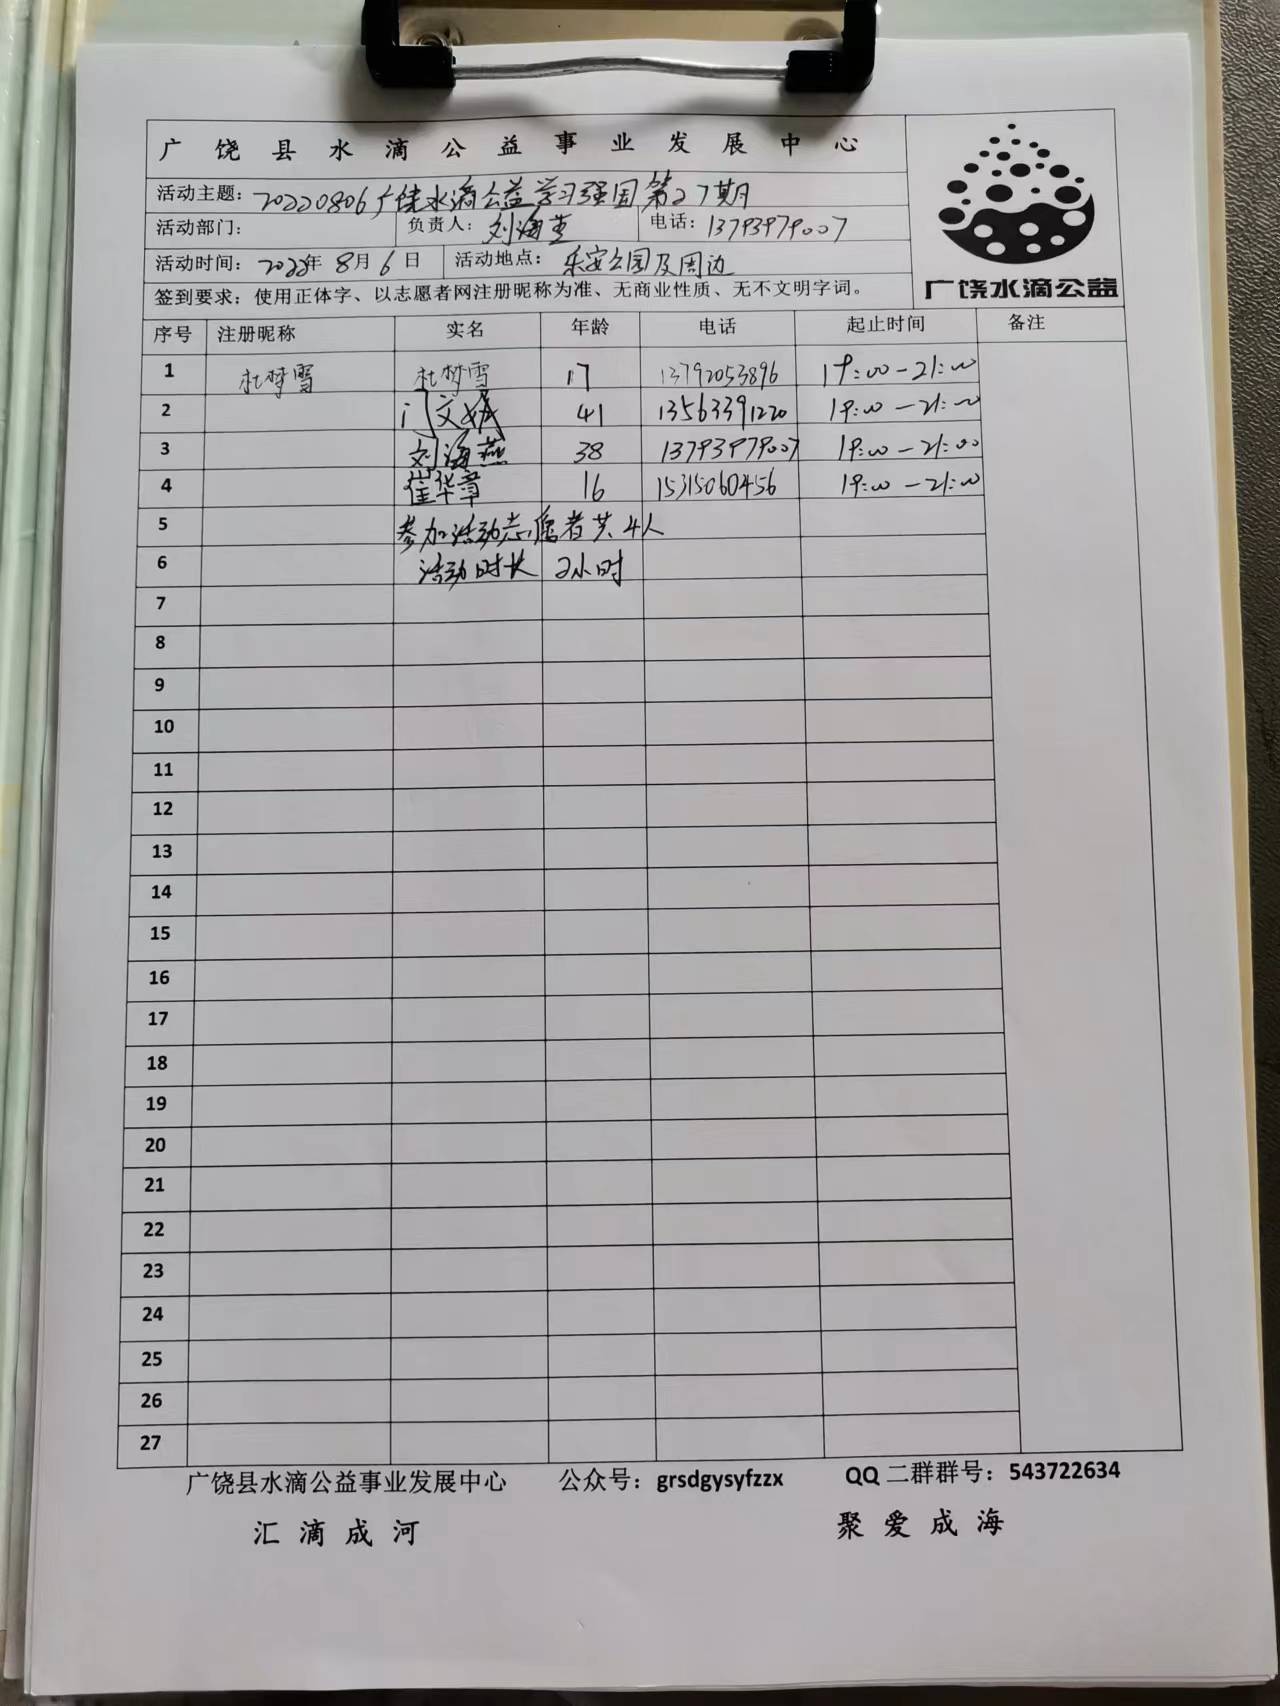 广饶县水滴公益事业发展中心
活动主题：20220806广饶水滴公益学习强国第27期
活动部门： 负责人：刘海燕 电话：13793979007
活动时间：2022年8月6日 活动地点：乐安公园及周边
签到要求：使用正体字、以志愿者网注册昵称为准、无商业性质、无不文明字词。
广饶水滴公益
序号 注册昵称 实名 年龄 电话 起止时间 备注
1 杜梦雪 杜梦雪 17 13792053896 19:00-21:00
2 门文 41 13563391220 19:00-21:00
3 刘海燕 38 13793979007 19:00-21:00
4 崔华章 16 15315060456 19:00-21:00
5 参加活动志愿者共4人
6 活动时长 2小时
7
8
9
10
11
12
13
14
15
16
17
18
19
20
21
22
23
24
25
26
27
广饶县水滴公益事业发展中心 公众号：grsdgysyfzzx QQ二群群号：543722634
汇滴成河 聚爱成海